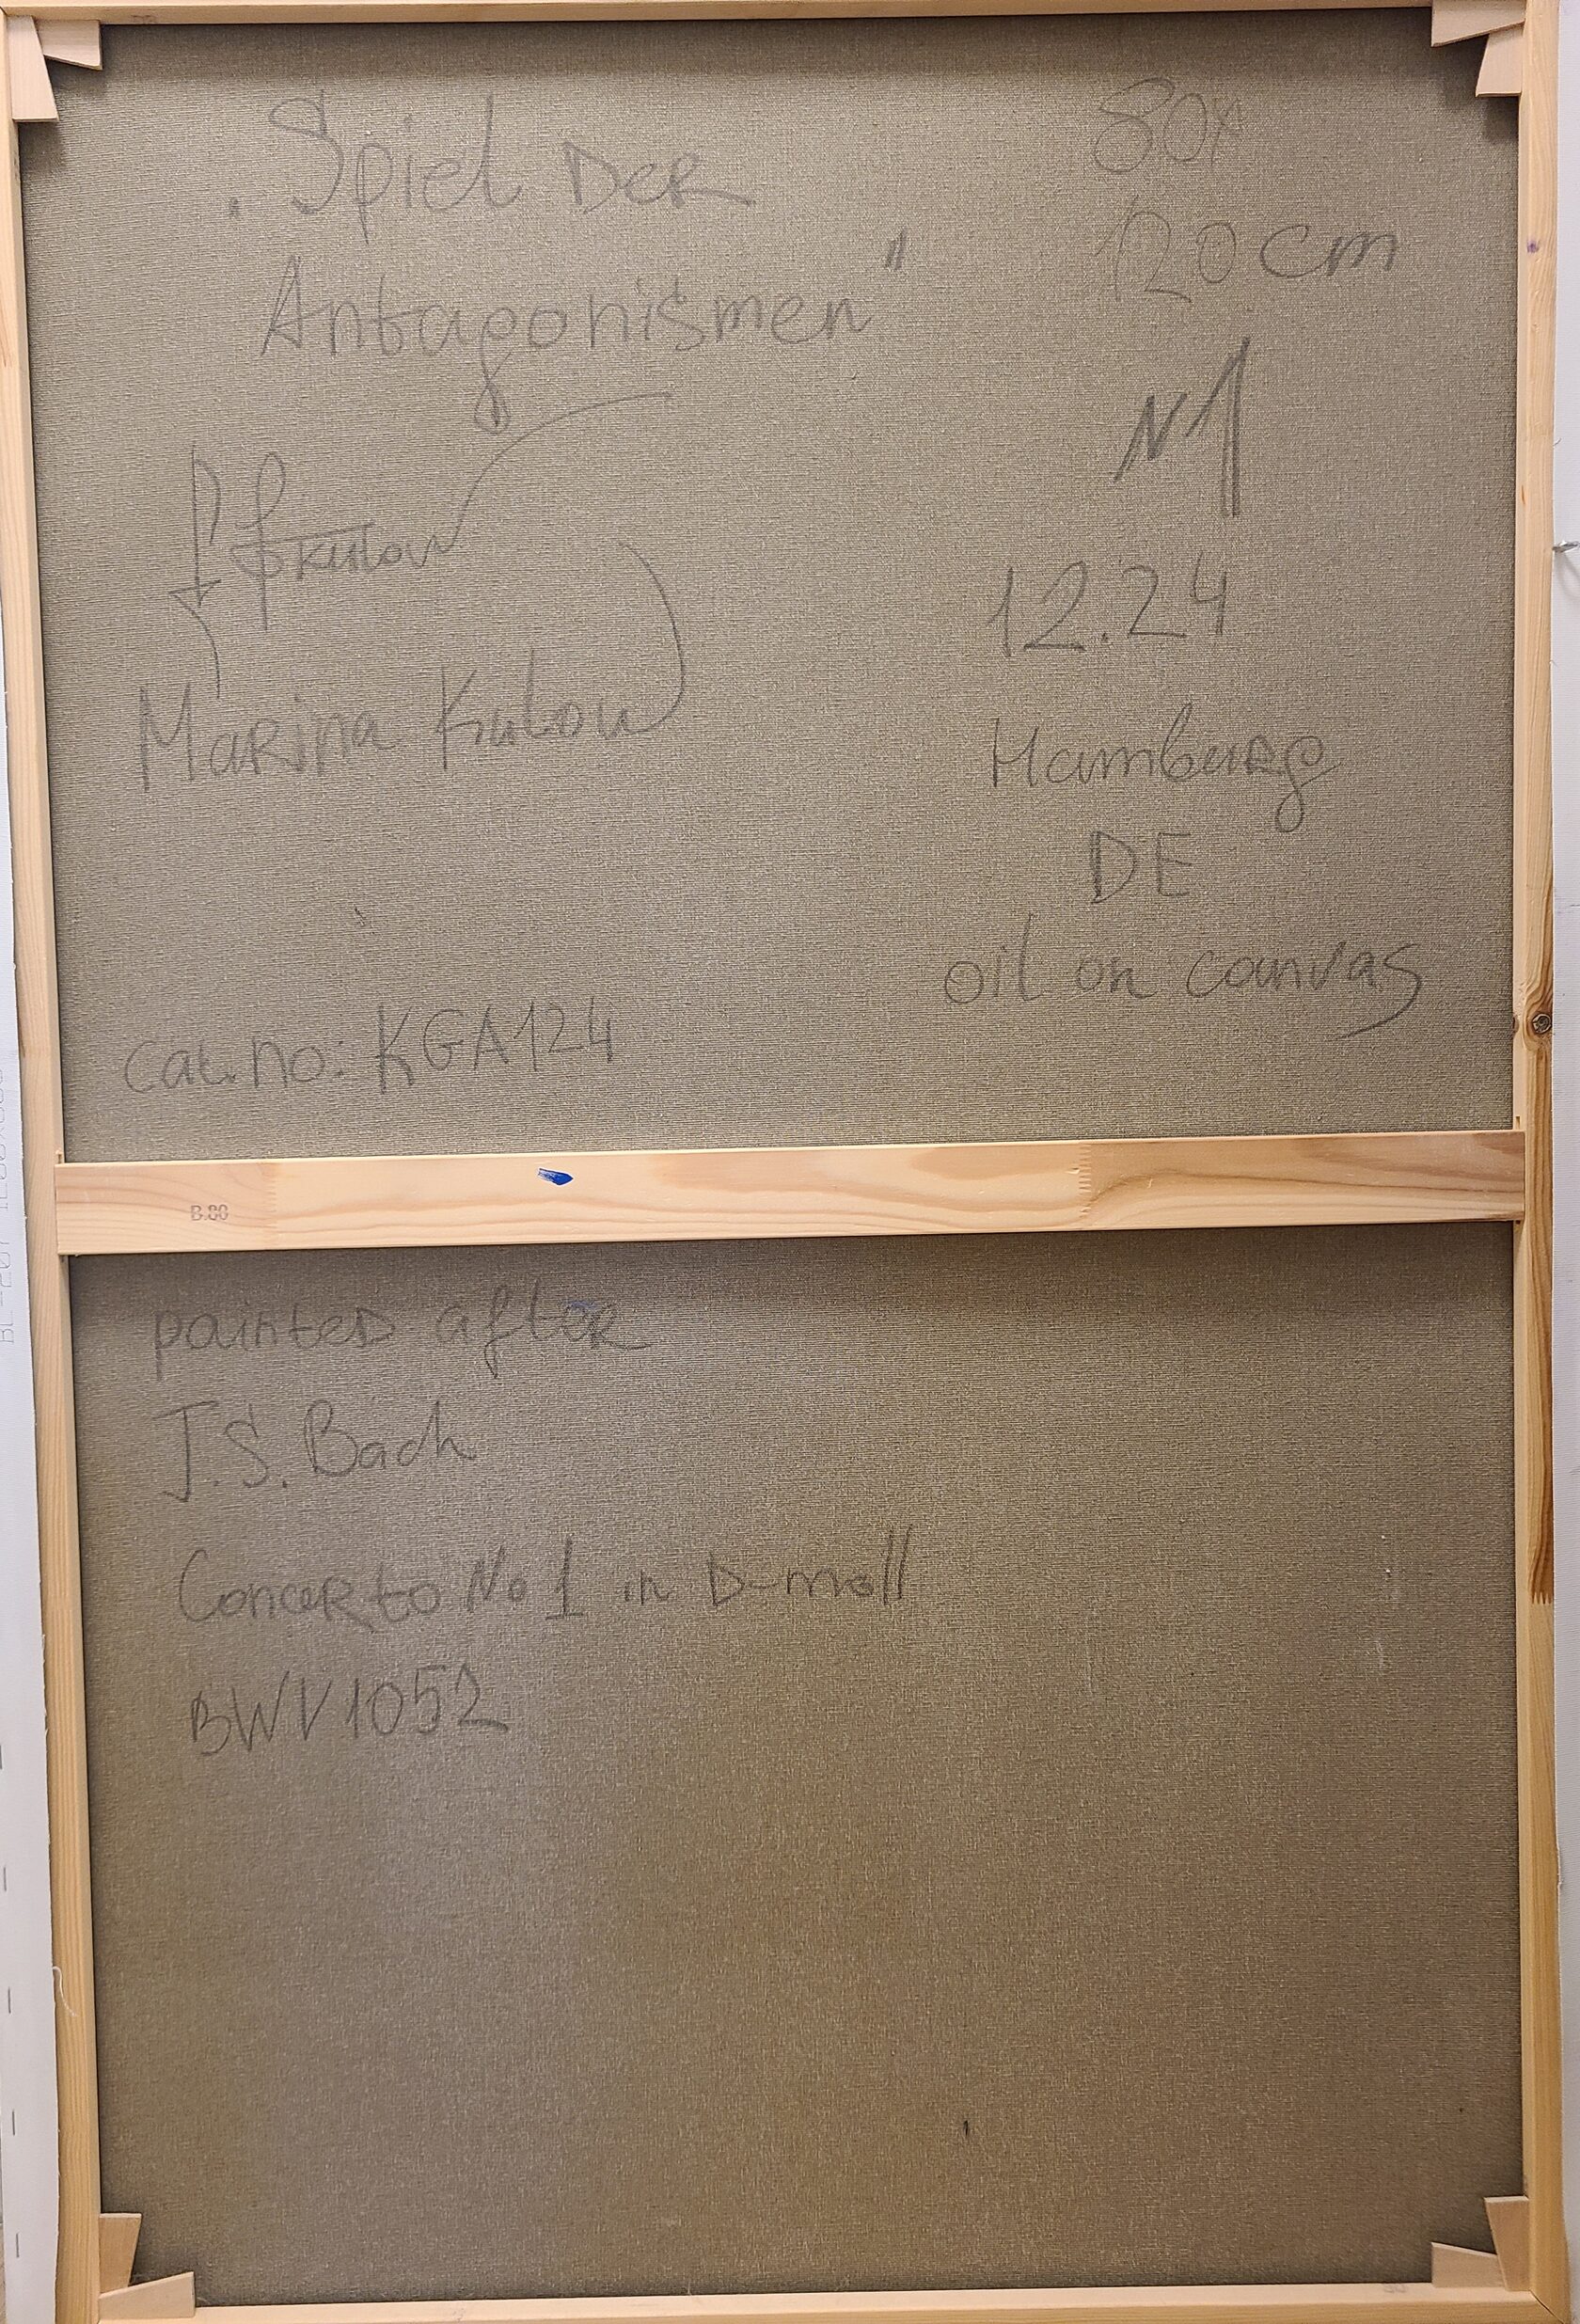 „Spiel Der
Antagonismen"
80x
120 cm
N1
Marina Kulow
12.24
Hamburg
DE
oil on canvas
cat.no: KGA124
B.80
painted after
J.S. Bach
Concerto No 1 in D-moll
BWV1052